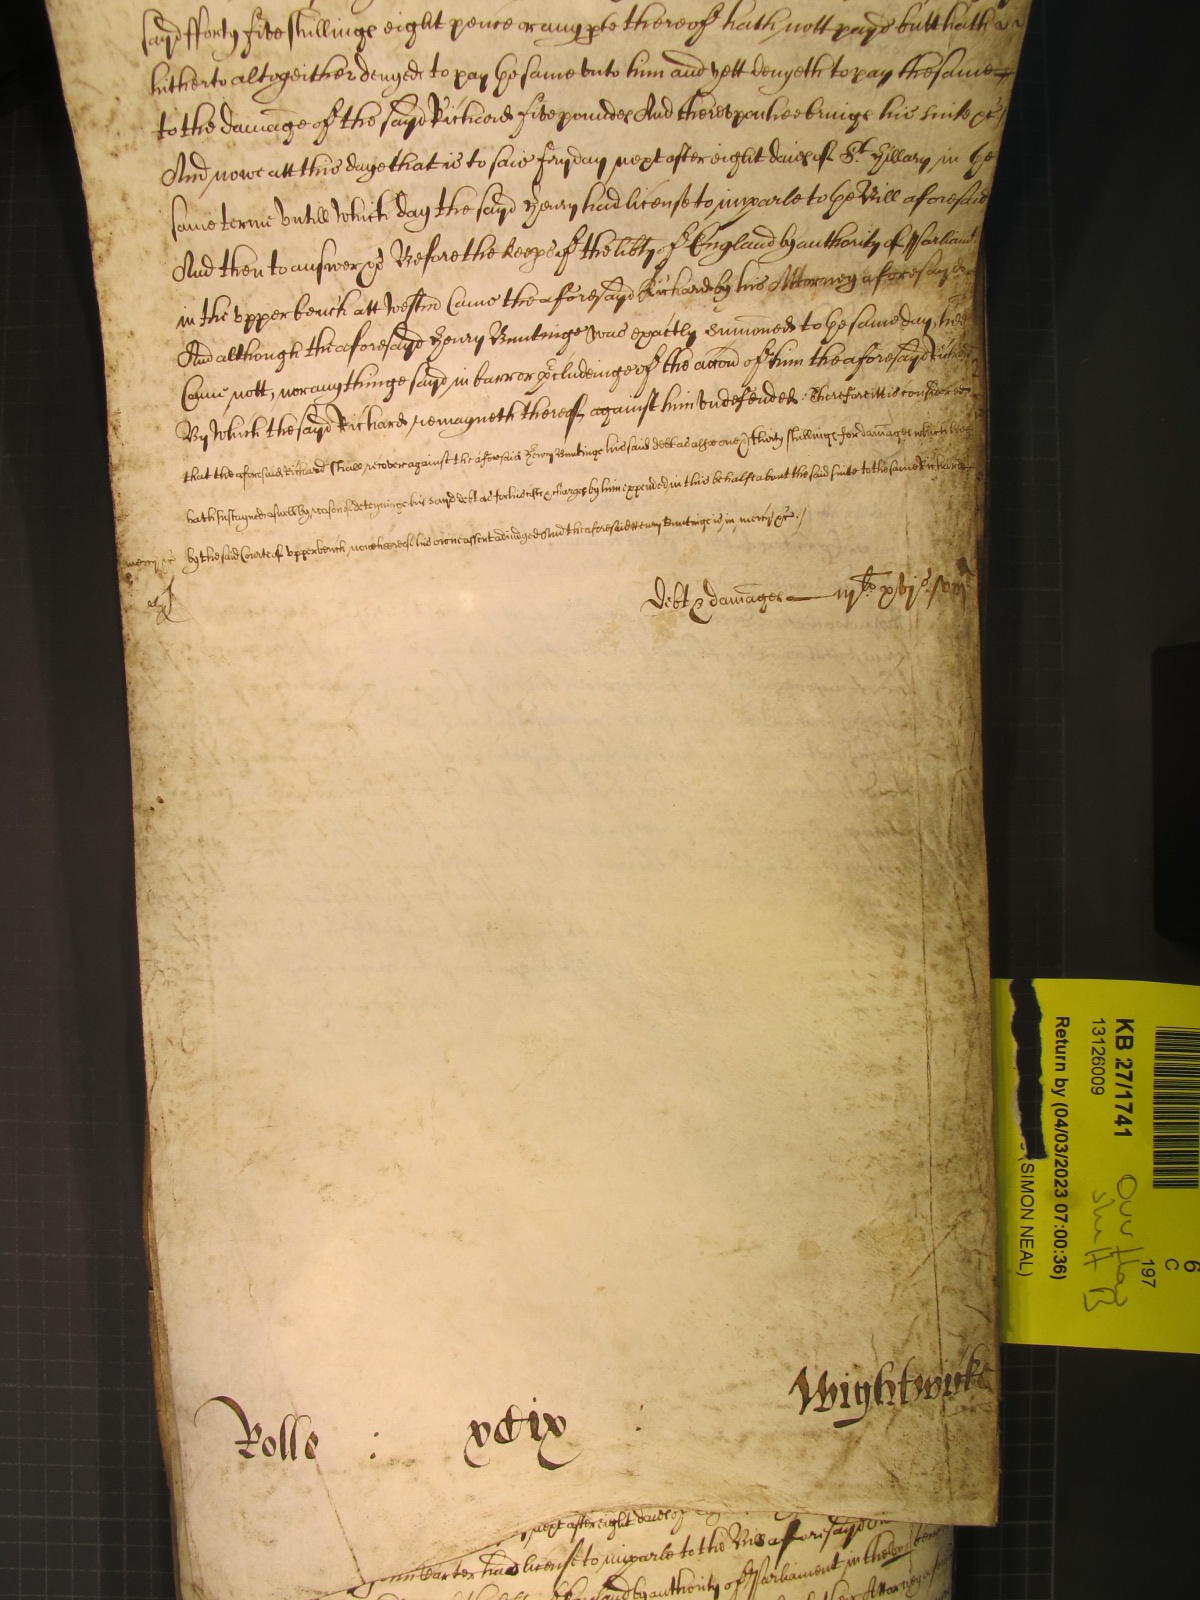 sayd fforty five shillinge eight pence or any pte thereof hath nott payd butt hath
hitherto altogeither denyed to pay ye same unto him and yett denyeth to pay the same
to the damage of the sayd Richard five poundes And thereupon hee bringe his suite &c
And nowe att this daye that is to saie Fryday next after eight daies of St Hillary in ye
same terme Untill Which day the sayd Henry had license to imparle to ye Bill aforesaid
And then to answer &c Before the Keeps of the libty of England by authority of Parliamt
in the upper bench att Westm Came the aforesayd Richard by his Attorney aforesayd
And although the aforesayd Henry Buntinge was exactly sumoned to ye same day, hee
Came nott, nor any thinge sayd in barr or pcludeinge of the accon of him the aforesayd Richard
By Which the sayd Richard remayneth thereof against him Undefended. Therefore itt is considered
that the aforesaid Richard shall recover against the aforesaid Henry Buntinge his said debt as alsoe one & thirty shillinge for damages which hee
hath sustayned aswell by reason of deteyninge his sayd debt as for his coste & charges by him expended in this behalfe about the said suite to the same Richard
by the said Courte of upper bench, now heere of his owne assent adiudged And the aforesaid Henry Buntinge is in mercy &c
mercy &c
Debt & damages iijli xvjs viijd
Wightwicke
Rolle : xcix :
next after eight daies of
Carter had license to imparle to the Bill aforesayd
England by authority of Parliament in the
Attorney
KB 27/1741
13126009
Return by (04/03/2023 07:00:36)
(SIMON NEAL)
197
C
6